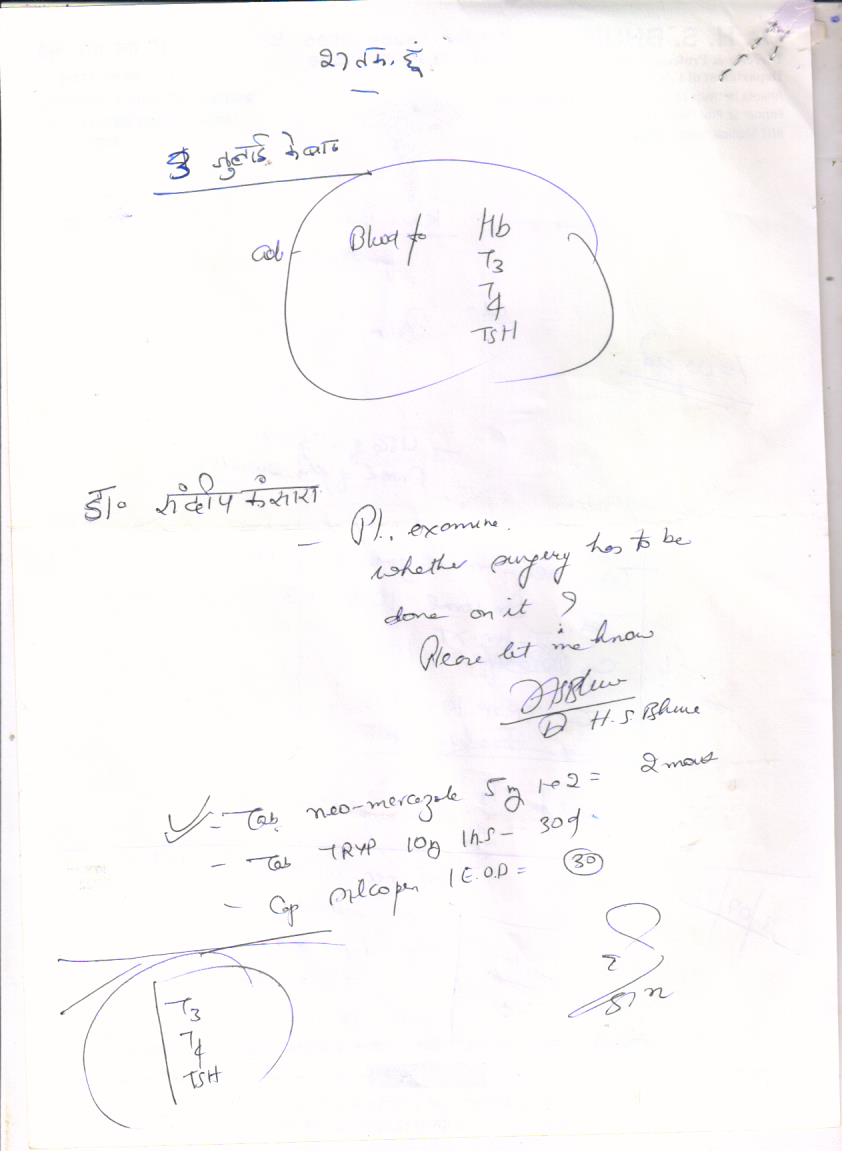 27 तक हूँ
3 जुलाई के बाद
adv- Blood for Hb
T3
T4
TSH
डा० संदीप कंसारा
- Pl. examine.
whether surgery has to be
done on it ?
Please let me know
Dr H. S. Bhu
- Tab. neo-mercazole 5mg 1+2 = 2
- Tab TRYP 10mg 1hs - 30d
- Cap 1 E.O.D = 30
T3
T4
TSH